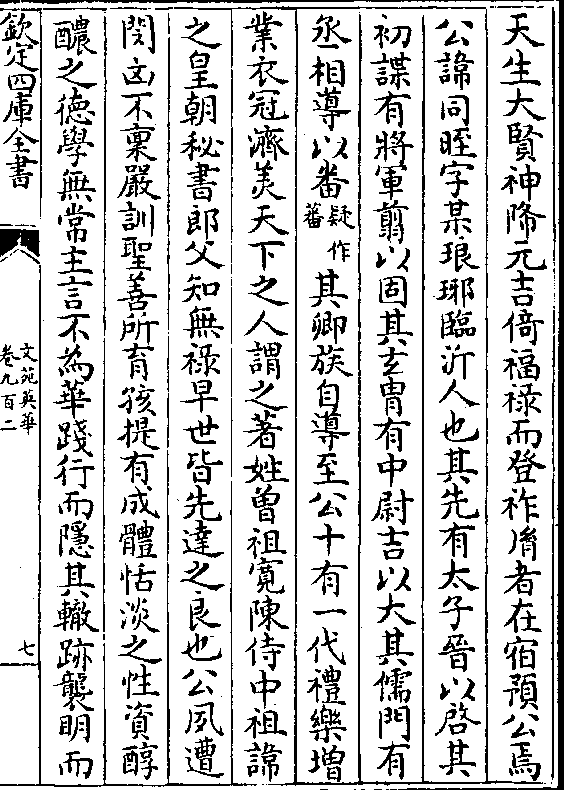 天生大賢神降元吉倚福祿而登祚胤者在宿預公焉
公諱同晊字某琅琊臨沂人也其先有太子晉以啓其
初謀有將軍翦以固其玄胄有中尉吉以大其儒門有
丞相導以番疑作蕃其鄉族自導至公十有一代禮樂增
業衣冠濟美天下之人謂之著姓曾祖寛陳侍中祖諱
之皇朝秘書郎父知無祿早世皆先達之良也公夙遭
閔凶不稟嚴訓聖善所育孩提有成體恬淡之性資醇
醲之德學無常主言不為華踐行而隱其轍跡襲明而
欽定四庫全書
文苑英華
卷九百二
七